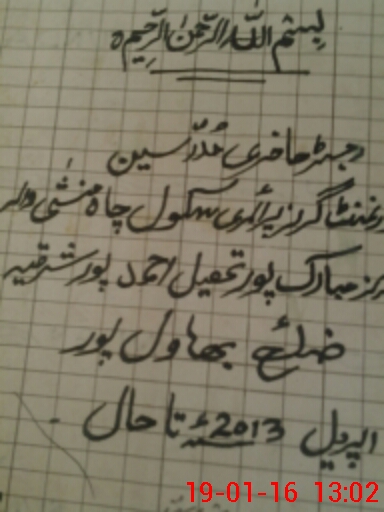 بسم اللہ الرحمٰن الرحیم
رجسٹر حاضری مُدرّسین
گرلز پرائمری سکول چاہ منشی والہ
مبارک پور تحصیل احمد پور شرقیہ
ضلع بھاول پور
اپریل 2013ء تا حال -
19-01-16 13:02